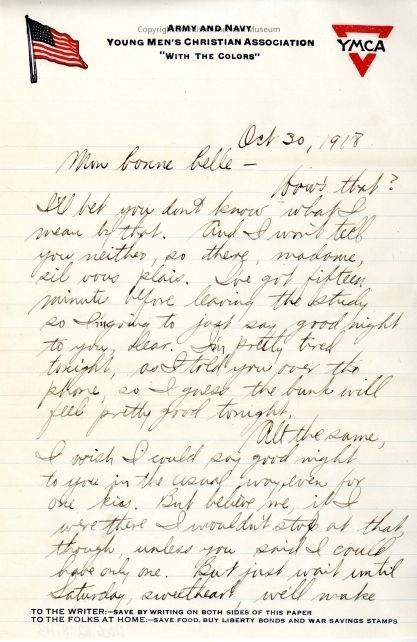 Copyrig
Museum
ARMY AND NAVY
YOUNG MEN'S CHRISTIAN ASSOCIATION
"WITH THE COLORS"
YMCA
Oct 30, 1918
Mon bonne belle –
How's that?
I'll bet you don't know what I
mean by that. And I won't tell
you neither, so there, madame,
sil vous plais. I've got fifteen
minute before leaving the study
so I'm going to just say good night
to you, dear. I'm pretty tired
tonight, as I told you over the
phone, so I guess the bunk will
feel pretty good tonight.
All the same,
I wish I could say good night
to you in the usual way, even for
one kiss. But believe me, if I
were there I wouldn't stop at that,
though, unless you said I could
have only one. But just wait until
Saturday, sweetheart, we'll make
TO THE WRITER:—SAVE BY WRITING ON BOTH SIDES OF THIS PAPER
TO THE FOLKS AT HOME:—SAVE FOOD, BUY LIBERTY BONDS AND WAR SAVINGS STAMPS